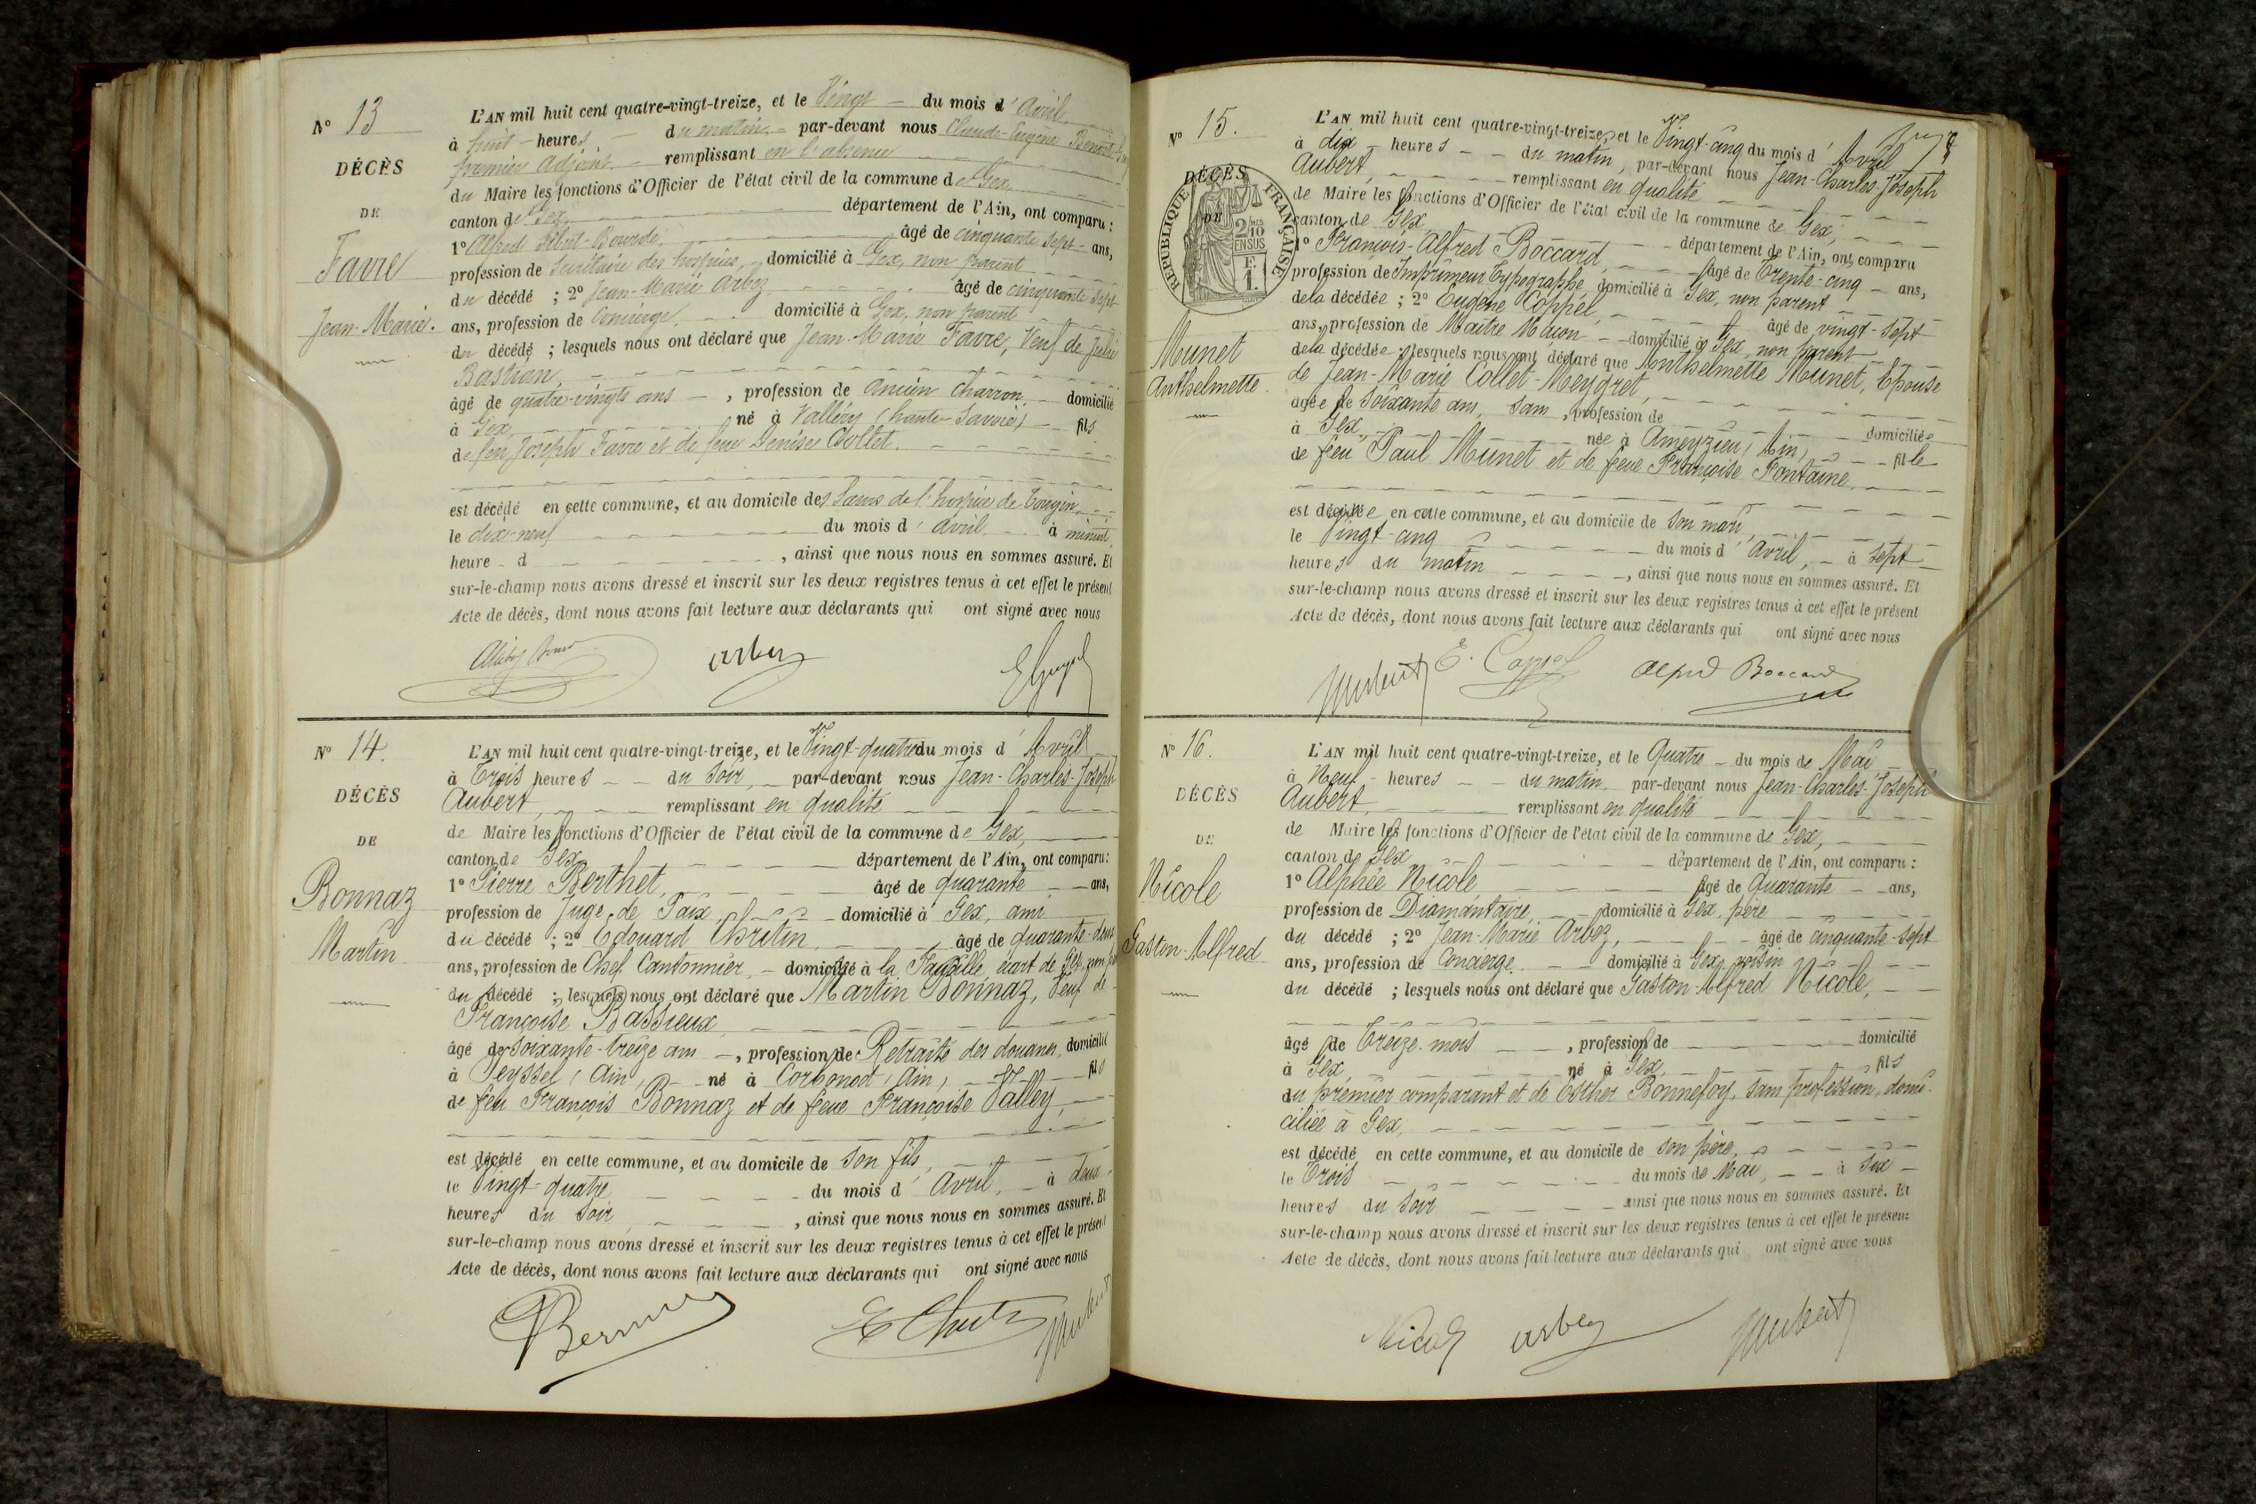 N° 13
DÉCÈS
DE
Favre
Jean-Marie.
L'AN mil huit cent quatre-vingt-treize, et le Vingt du mois d'Avril
à huit heures du matin par-devant nous Claude-Eugène
premier Adjoint remplissant en l'absence
du Maire les fonctions d'Officier de l'état civil de la commune de Gex
canton de Gex département de l'Ain, ont comparu :
1° Alfred Bourde âgé de cinquante sept ans,
profession de Secrétaire des hospices, domicilié à Gex, non parent
du décédé ; 2° Jean-Marie Arbez âgé de cinquante sept
ans, profession de Concierge, domicilié à Gex, non parent
du décédé ; lesquels nous ont déclaré que Jean-Marie Favre, Veuf de Julie
Bastian,
âgé de quatre-vingts ans, profession de ancien charron, domicilié
à Gex né à Valléry (haute-Savoie) fils
de feu Joseph Favre et de feue Denise Collet.
est décédé en cette commune, et au domicile des Sœurs de l'hospice de Tougin
le dix-neuf du mois d'avril à minuit
heure d , ainsi que nous nous en sommes assuré. Et
sur-le-champ nous avons dressé et inscrit sur les deux registres tenus à cet effet le présent
Acte de décès, dont nous avons fait lecture aux déclarants qui ont signé avec nous
arbez
N° 14.
DÉCÈS
DE
Bonnaz
Martin
L'AN mil huit cent quatre-vingt-treize, et le Vingt-quatre du mois d'Avril
à Trois heures du soir, par-devant nous Jean-Charles-Joseph
Aubert, remplissant en qualité
de Maire les fonctions d'Officier de l'état civil de la commune de Gex,
canton de Gex département de l'Ain, ont comparu :
1° Pierre Berthet, âgé de quarante ans,
profession de Juge de Paix, domicilié à Gex, ami
du décédé ; 2° Edouard Chritin, âgé de quarante-deux
ans, profession de Chef Cantonnier, domicilié à la Faucille, écart de Gex,
du décédé ; lesquels nous ont déclaré que Martin Bonnaz, Veuf de
Françoise Bassieux
âgé de soixante-treize ans, profession de Retraité des douanes, domicilié
à Seyssel (Ain) né à Corbonod (Ain) fils
de feu François Bonnaz et de feue Françoise Valley,
est décédé en cette commune, et au domicile de son fils,
le Vingt-quatre du mois d'Avril, à deux
heures du soir, ainsi que nous nous en sommes assuré. Et
sur-le-champ nous avons dressé et inscrit sur les deux registres tenus à cet effet le présent
Acte de décès, dont nous avons fait lecture aux déclarants qui ont signé avec nous
Aubert
N° 15.
DÉCÈS
DE
RÉPUBLIQUE FRANÇAISE
2/10
EN SUS
F.
1.
Munet
Anthelmette
L'AN mil huit cent quatre-vingt-treize, et le Vingt-cinq du mois d'Avril
à dix heures du matin, par-devant nous Jean-Charles-Joseph
Aubert, remplissant en qualité
de Maire les fonctions d'Officier de l'état civil de la commune de Gex,
canton de Gex département de l'Ain, ont comparu
1° François-Alfred Boccard, âgé de Trente-cinq ans,
profession de Imprimeur Typographe, domicilié à Gex, non parent
de la décédée ; 2° Eugène Coppel, âgé de vingt-sept
ans, profession de Maître Maçon domicilié à Gex, non parent
de la décédée ; lesquels nous ont déclaré que Anthelmette Munet, Epouse
de Jean-Marie Collet-Meygret,
âgée de Soixante ans, sans, profession de domiciliée
à Gex, née à Ameyzieu (Ain) fille
de feu Paul Munet et de feue Françoise Fontaine.
est décédée en cette commune, et au domicile de son mari,
le Vingt-cinq du mois d'Avril, à sept
heures du matin, ainsi que nous nous en sommes assuré. Et
sur-le-champ nous avons dressé et inscrit sur les deux registres tenus à cet effet le présent
Acte de décès, dont nous avons fait lecture aux déclarants qui ont signé avec nous
Aubert E. Coppel Alfred Boccard
N° 16.
DÉCÈS
DE
Nicole
Gaston-Alfred
L'AN mil huit cent quatre-vingt-treize, et le Quatre du mois de Mai
à Neuf heures du matin par-devant nous Jean-Charles-Joseph
Aubert, remplissant en qualité
de Maire les fonctions d'Officier de l'état civil de la commune de Gex,
canton de Gex département de l'Ain, ont comparu :
1° Alphée Nicole âgé de Quarante ans,
profession de Diamantaire, domicilié à Gex, père
du décédé ; 2° Jean-Marie Arbez, âgé de cinquante-sept
ans, profession de Concierge, domicilié à Gex, voisin
du décédé ; lesquels nous ont déclaré que Gaston-Alfred Nicole,
âgé de Treize mois, profession de domicilié
à Gex, né à Gex, fils
du premier comparant et de Esther Bonnefoy, sans profession, domi-
ciliée à Gex,
est décédé en cette commune, et au domicile de son père,
le Trois du mois de Mai, à six
heures du soir ainsi que nous nous en sommes assuré. Et
sur-le-champ nous avons dressé et inscrit sur les deux registres tenus à cet effet le présent
Acte de décès, dont nous avons fait lecture aux déclarants qui ont signé avec nous
Nicole arbez Aubert